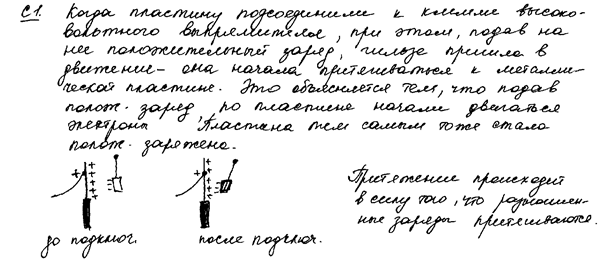 С1. Когда пластину подсоединили к клемме высоко-
вольтного выпрямителя, при этом, подав на
нее положительный заряд, гильза пришла в
движение – она начала притягиваться к металли-
ческой пластине. Это объясняется тем, что подав
полож. заряд, по пластине начали двигаться
электроны. Пластина тем самым тоже стала
полож. заряжена.
Притяжение происходит
в силу того, что разноимен-
ные заряды притягиваются.
до подключ. после подключ.